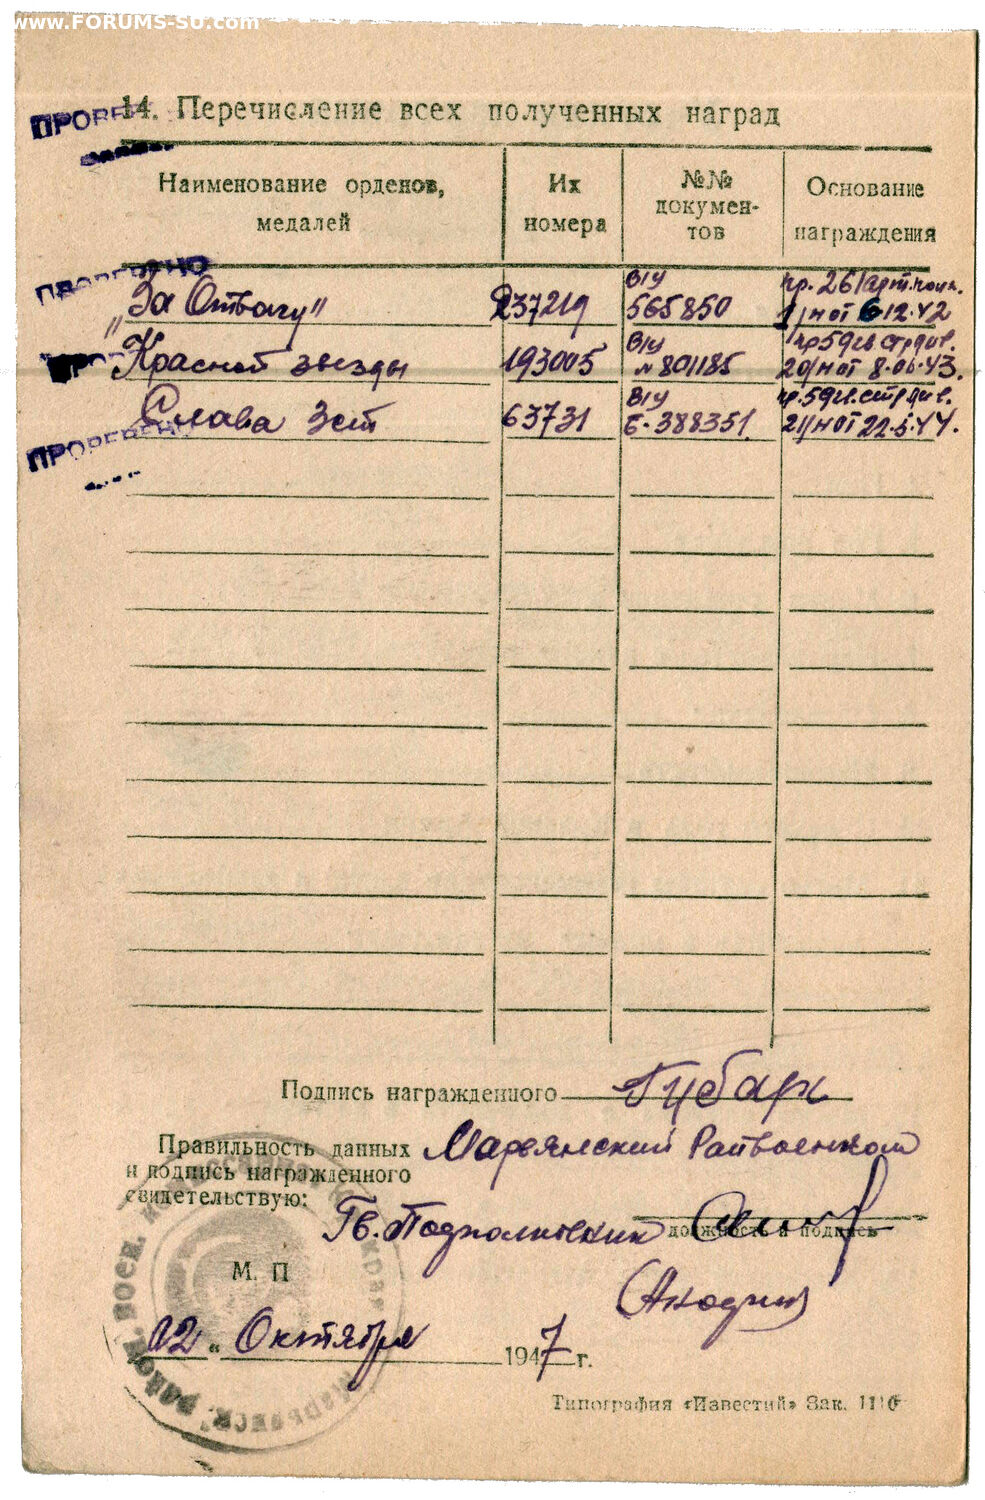 www.FORUMS-SU.com
14. Перечисление всех полученных наград
ПРОВЕ
Наименование орденов, медалей
Их номера
№№ докумен-тов
Основание награждения
ПРОВЕРЕНО
„За Отвагу" 237219 В/у 565850 пр. 261 арт. полк. 1/н от 6.12.42
ПРО
Красной звезды 193005 В/у № 801185 пр 59 гв стр див. 20/н от 8.06.43.
Слава 3 ст 63731 В/у Е-388351. пр. 59 гв. стр див. 21/н от 22.5.44.
ПРОВЕРЕНО
Подпись награжденного Губарь
Правильность данных
и подпись награжденного
свидетельствую:
Марьянский Райвоенком
Гв. Подполковник
должность и подпись
(Акодин)
М. П
12 „ Октября 1947 г.
Типография «Известий» Зак. 1116